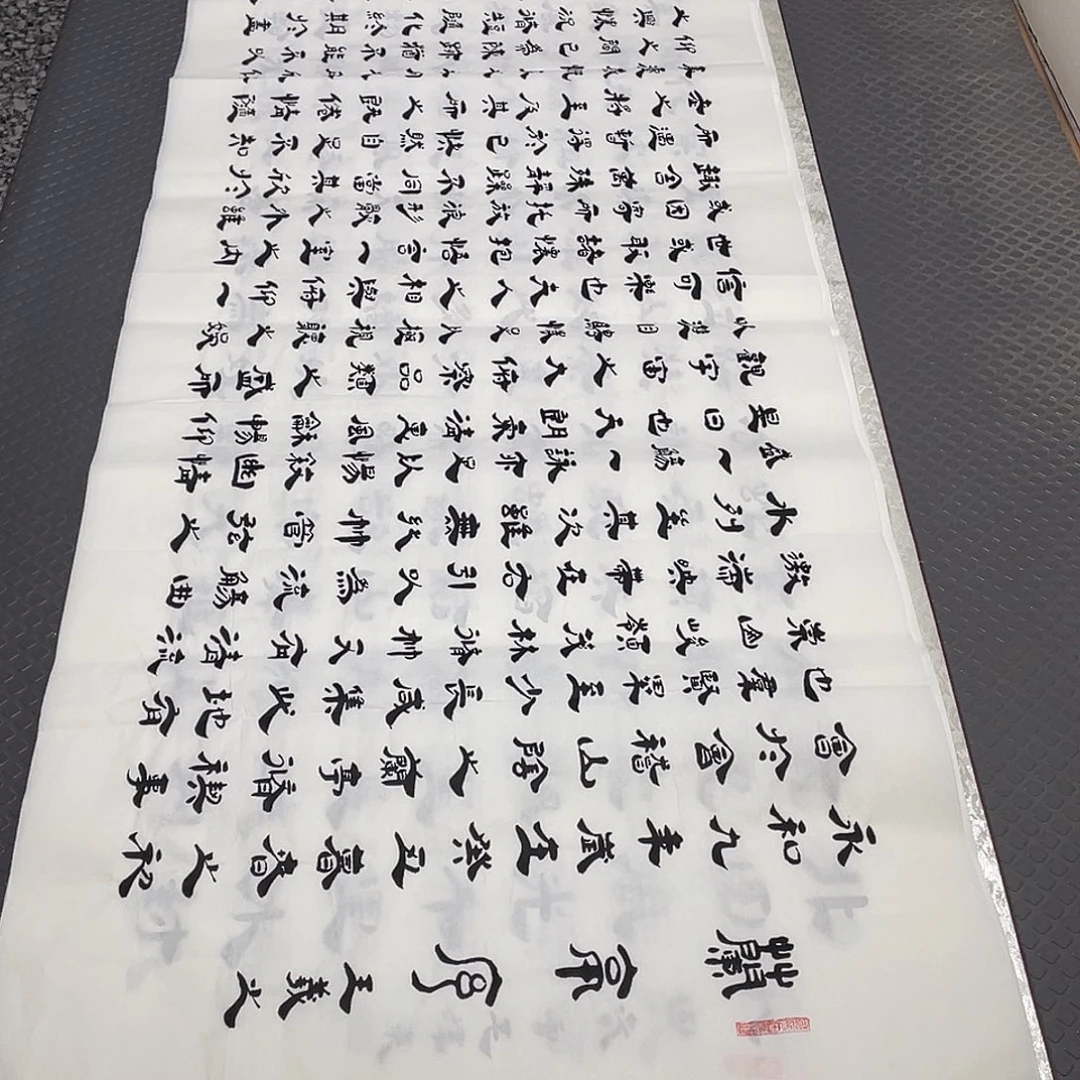 蘭亭序 王羲之
永和九年歲在癸丑暮春之初
會於會稽山陰之蘭亭脩禊事
也羣賢畢至少長咸集此地有
崇山峻領茂林脩竹又有清流
激湍映帶左右引以為流觴曲
水列坐其次雖無絲竹管弦之
盛一觴一詠亦足以暢敘幽情
是日也天朗氣清惠風和暢仰
觀宇宙之大俯察品類之盛所
以遊目騁懷足以極視聽之娛
信可樂也夫人之相與俯仰一
世或取諸懷抱悟言一室之內
或因寄所託放浪形骸之外雖
趣舍萬殊靜躁不同當其欣於
所遇暫得於己快然自足不知
老之將至及其所之既倦情隨
仰之閒已為陳跡猶不能不以
之興懷況脩短隨化終期於盡